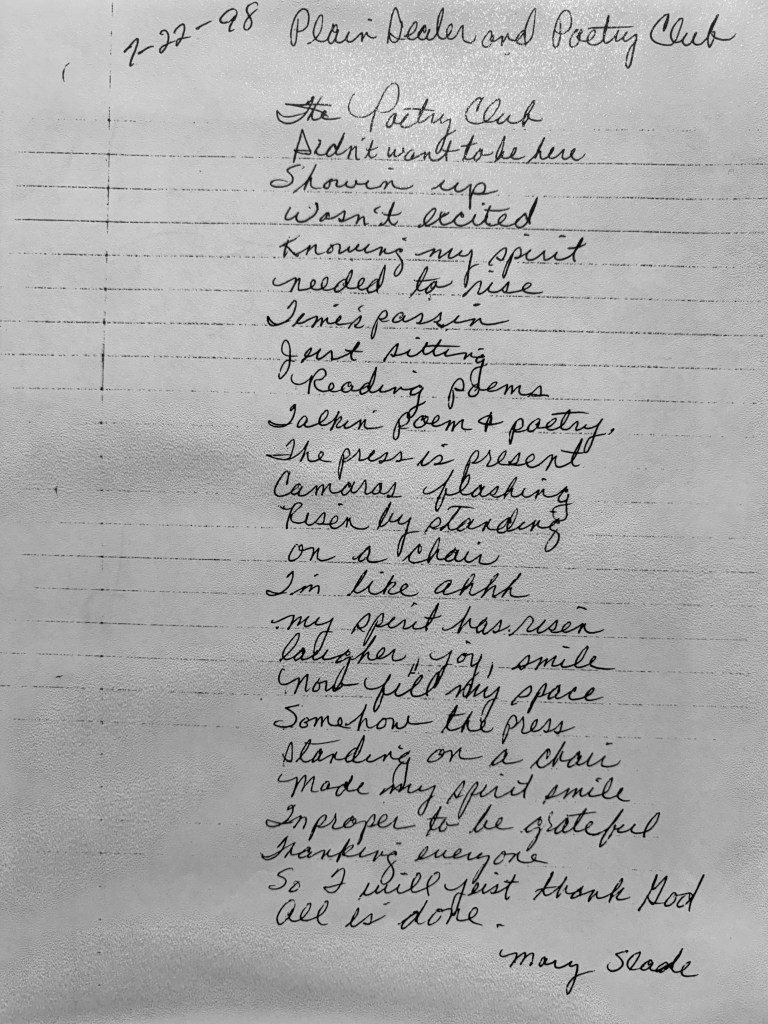 7-22-98 Plain Dealer and Poetry Club
The Poetry Club
Didn't want to be here
Showin up
Wasn't excited
Knowing my spirit
needed to rise
Time's passin
Just sitting
Reading poems
Talkin poem & poetry.
The press is present
Camaras flashing
Risen by standing
on a chair
I'm like ahhh
my spirit has risen
laugher, joy, smile
now fill my space
Somehow the press
standing on a chair
Made my spirit smile
Inproper to be grateful
Thanking everyone
So I will just thank God
All is done.
Mary Slade